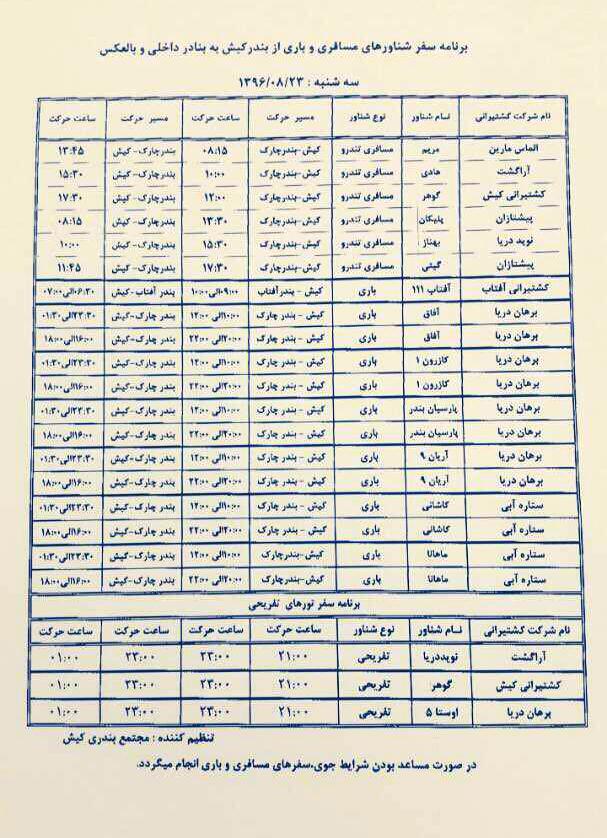 برنامه سفر شناورهای مسافری و باری از بندرکیش به بنادر داخلی و بالعکس
سه شنبه : ۱۳۹۶/۰۸/۲۳
نام شرکت کشتیرانی نام شناور نوع شناور مسیر حرکت ساعت حرکت مسیر حرکت ساعت حرکت
الماس مارین مریم مسافری تندرو کیش-بندرچارک ۰۸:۱۵ بندرچارک-کیش ۱۳:۴۵
آراگشت هادی مسافری تندرو کیش-بندرچارک ۱۰:۰۰ بندرچارک-کیش ۱۵:۳۰
کشتیرانی کیش گوهر مسافری تندرو کیش-بندرچارک ۱۲:۰۰ بندرچارک-کیش ۱۷:۳۰
پیشتازان پلیکان مسافری تندرو کیش-بندرچارک ۱۳:۳۰ بندرچارک-کیش ۰۸:۱۵
نوید دریا بهناز مسافری تندرو کیش-بندرچارک ۱۵:۳۰ بندرچارک-کیش ۱۰:۰۰
پیشتازان گیتی مسافری تندرو کیش-بندرچارک ۱۷:۳۰ بندرچارک-کیش ۱۱:۴۵
کشتیرانی آفتاب آفتاب ۱۱۱ باری کیش - بندرآفتاب ۰۹:۰۰الی۱۰:۰۰ بندر آفتاب-کیش ۰۶:۳۰الی۰۷:۰۰
برهان دریا آفاق باری کیش - بندر چارک ۱۰:۰۰الی۱۲:۰۰ بندر چارک-کیش ۲۳:۳۰الی۰۱:۳۰
برهان دریا آفاق باری کیش - بندر چارک ۲۰:۰۰الی۲۲:۰۰ بندر چارک-کیش ۱۶:۰۰الی۱۸:۰۰
برهان دریا کازرون ۱ باری کیش - بندر چارک ۱۰:۰۰الی۱۲:۰۰ بندر چارک-کیش ۲۳:۳۰الی۰۱:۳۰
برهان دریا کازرون ۱ باری کیش - بندر چارک ۲۰:۰۰الی۲۲:۰۰ بندر چارک-کیش ۱۶:۰۰الی۱۸:۰۰
برهان دریا پارسیان بندر باری کیش - بندر چارک ۱۰:۰۰الی۱۲:۰۰ بندر چارک-کیش ۲۳:۳۰الی۰۱:۳۰
برهان دریا پارسیان بندر باری کیش - بندر چارک ۲۰:۰۰الی۲۲:۰۰ بندر چارک-کیش ۱۶:۰۰الی۱۸:۰۰
برهان دریا آریان ۹ باری کیش - بندر چارک ۱۰:۰۰الی۱۲:۰۰ بندر چارک-کیش ۲۳:۳۰الی۰۱:۳۰
برهان دریا آریان ۹ باری کیش - بندر چارک ۲۰:۰۰الی۲۲:۰۰ بندر چارک-کیش ۱۶:۰۰الی۱۸:۰۰
ستاره آبی کاشانی باری کیش - بندر چارک ۱۰:۰۰الی۱۲:۰۰ بندر چارک-کیش ۲۳:۳۰الی۰۱:۳۰
ستاره آبی کاشانی باری کیش - بندر چارک ۲۰:۰۰الی۲۲:۰۰ بندر چارک-کیش ۱۶:۰۰الی۱۸:۰۰
ستاره آبی ماهانا باری کیش-بندرچارک ۱۰:۰۰الی۱۲:۰۰ بندر چارک-کیش ۲۳:۳۰الی۰۱:۳۰
ستاره آبی ماهانا باری کیش-بندرچارک ۲۰:۰۰الی۲۲:۰۰ بندر چارک-کیش ۱۶:۰۰الی۱۸:۰۰
برنامه سفر تورهای تفریحی
نام شرکت کشتیرانی نام شناور نوع شناور ساعت حرکت ساعت حرکت ساعت حرکت ساعت حرکت
آراگشت نویددریا تفریحی ۲۱:۰۰ ۲۳:۰۰ ۲۳:۰۰ ۰۱:۰۰
کشتیرانی کیش گوهر تفریحی ۲۱:۰۰ ۲۳:۰۰ ۲۳:۰۰ ۰۱:۰۰
برهان دریا اوستا ۵ تفریحی ۲۱:۰۰ ۲۳:۰۰ ۲۳:۰۰ ۰۱:۰۰
تنظیم کننده : مجتمع بندری کیش
در صورت مساعد بودن شرایط جوی،سفرهای مسافری و باری انجام میگردد.